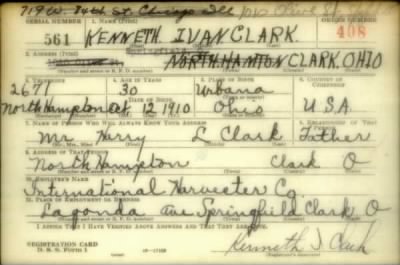 719 W. 84th St. Chicago Ill
SERIAL NUMBER 1. NAME (Print) ORDER NUMBER
561 KENNETH IVAN CLARK 408
2. ADDRESS (Print)
NORTH HAMTON CLARK, OHIO
3. TELEPHONE 4. AGE IN YEARS 5. PLACE OF BIRTH 6. COUNTRY OF CITIZENSHIP
2671 30 Urbana
North Hampton Oct 12, 1910 Ohio U.S.A.
7. NAME OF PERSON WHO WILL ALWAYS KNOW YOUR ADDRESS 8. RELATIONSHIP OF THAT PERSON
Mr. Harry L Clark Father
(Mr., Mrs., Miss) (First) (Middle) (Last)
9. ADDRESS OF THAT PERSON
North Hampton Clark O
10. EMPLOYER'S NAME
International Harvester Co.
11. PLACE OF EMPLOYMENT OR BUSINESS
Lagonda Ave Springfield Clark O
I AFFIRM THAT I HAVE VERIFIED ABOVE ANSWERS AND THAT THEY ARE TRUE.
REGISTRATION CARD
D. S. S. Form 1
Kenneth I. Clark
(Registrant's signature)